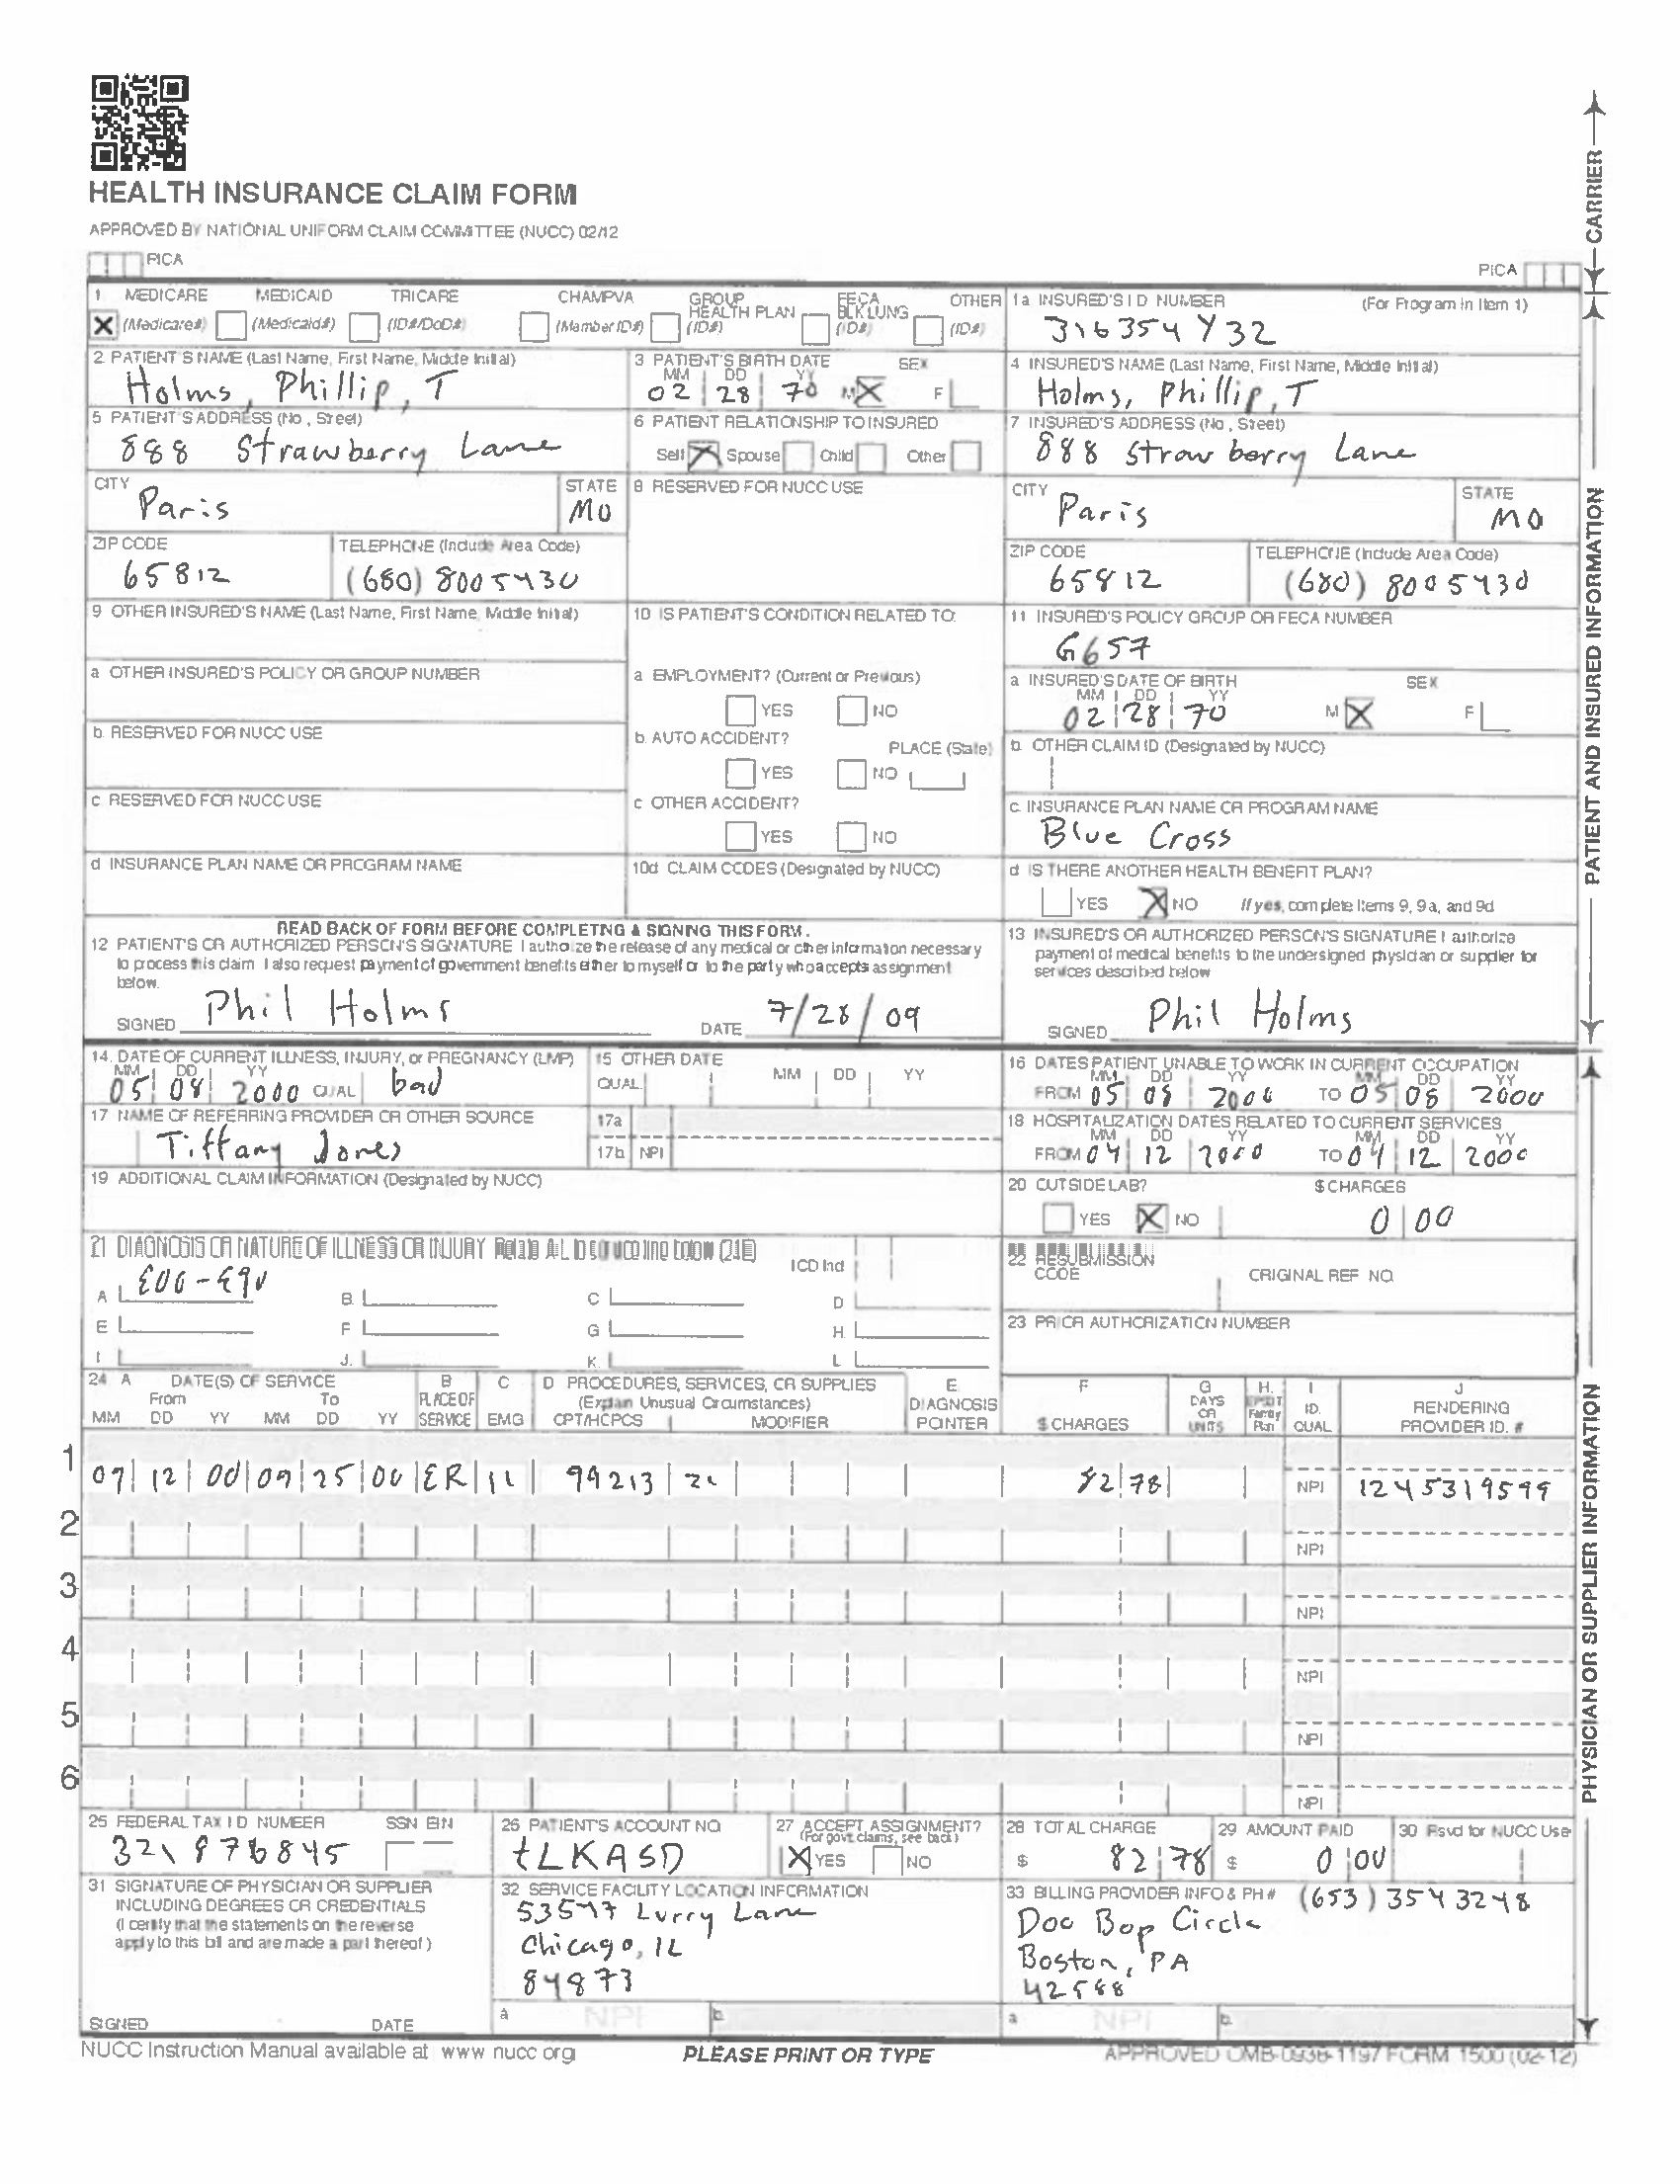 HEALTH INSURANCE CLAIM FORM
APPROVED BY NATIONAL UNIFORM CLAIM COMMITTEE (NUCC) 02/12
PICA
PICA
CARRIER
1 MEDICARE MEDICAID TRICARE CHAMPVA GROUP HEALTH PLAN FECA BLK LUNG OTHER
X (Medicare#) (Medicaid#) (ID#/DoD#) (Member ID#) (ID#) (ID#) (ID#)
1a INSURED'S I D NUMBER (For Program in Item 1)
316354Y32
2 PATIENT'S NAME (Last Name, First Name, Middle Initial)
Holms, Phillip, T
3 PATIENT'S BIRTH DATE SEX
MM DD YY
02 28 70 M X F
4 INSURED'S NAME (Last Name, First Name, Middle Initial)
Holms, Phillip, T
5 PATIENT'S ADDRESS (No, Street)
888 Strawberry Lane
6 PATIENT RELATIONSHIP TO INSURED
Self X Spouse Child Other
7 INSURED'S ADDRESS (No, Street)
888 Strawberry Lane
CITY
Paris
STATE
MO
8 RESERVED FOR NUCC USE
CITY
Paris
STATE
MO
ZIP CODE
65812
TELEPHONE (Include Area Code)
(680) 8005430
ZIP CODE
65812
TELEPHONE (Include Area Code)
(680) 8005430
9 OTHER INSURED'S NAME (Last Name, First Name, Middle Initial)
10 IS PATIENT'S CONDITION RELATED TO:
11 INSURED'S POLICY GROUP OR FECA NUMBER
G657
a OTHER INSURED'S POLICY OR GROUP NUMBER
a EMPLOYMENT? (Current or Previous)
YES NO
a INSURED'S DATE OF BIRTH SEX
MM DD YY
02 28 70 M X F
b. RESERVED FOR NUCC USE
b. AUTO ACCIDENT? PLACE (State)
YES NO
b. OTHER CLAIM ID (Designated by NUCC)
c RESERVED FOR NUCC USE
c OTHER ACCIDENT?
YES NO
c. INSURANCE PLAN NAME OR PROGRAM NAME
Blue Cross
d INSURANCE PLAN NAME OR PROGRAM NAME
10d CLAIM CODES (Designated by NUCC)
d IS THERE ANOTHER HEALTH BENEFIT PLAN?
YES X NO If yes, complete items 9, 9a, and 9d
PATIENT AND INSURED INFORMATION
READ BACK OF FORM BEFORE COMPLETING & SIGNING THIS FORM.
12 PATIENT'S OR AUTHORIZED PERSON'S SIGNATURE I authorize the release of any medical or other information necessary
to process this claim I also request payment of government benefits either to myself or to the party who accepts assignment
below.
SIGNED Phil Holms DATE 7/28/09
13 INSURED'S OR AUTHORIZED PERSON'S SIGNATURE I authorize
payment of medical benefits to the undersigned physician or supplier for
services described below
SIGNED Phil Holms
14. DATE OF CURRENT ILLNESS, INJURY, or PREGNANCY (LMP)
MM DD YY
05 08 2000 QUAL bad
15 OTHER DATE
QUAL MM DD YY
16 DATES PATIENT UNABLE TO WORK IN CURRENT OCCUPATION
MM DD YY MM DD YY
FROM 05 08 2000 TO 05 08 2000
17 NAME OF REFERRING PROVIDER OR OTHER SOURCE
Tiffany Jones
17a
17b NPI
18 HOSPITALIZATION DATES RELATED TO CURRENT SERVICES
MM DD YY MM DD YY
FROM 04 12 2000 TO 04 12 2000
19 ADDITIONAL CLAIM INFORMATION (Designated by NUCC)
20 OUTSIDE LAB? $ CHARGES
YES X NO 0 00
21 DIAGNOSIS OR NATURE OF ILLNESS OR INJURY Relate A-L to service line below (24E)
ICD Ind
A E00-E90 B. C D
E F G H.
I J. K. L
22 RESUBMISSION CODE ORIGINAL REF NO.
23 PRIOR AUTHORIZATION NUMBER
24 A DATE(S) OF SERVICE B C D PROCEDURES, SERVICES, OR SUPPLIES E F G H. I J
From To PLACE OF (Explain Unusual Circumstances) DIAGNOSIS DAYS OR EPSDT Family ID. RENDERING
MM DD YY MM DD YY SERVICE EMG CPT/HCPCS MODIFIER POINTER $ CHARGES UNITS Plan QUAL PROVIDER ID. #
1
12 00 09 25 00 ER 99213 82 78 NPI 1245319599
2
NPI
3
NPI
4
NPI
5
NPI
6
NPI
25 FEDERAL TAX I D NUMBER SSN EIN
321876845
26 PATIENT'S ACCOUNT NO
tLKASD
27 ACCEPT ASSIGNMENT?
(For govt. claims, see back)
X YES NO
28 TOTAL CHARGE
$ 82 78
29 AMOUNT PAID
$ 0 00
30 Rsvd for NUCC Use
31 SIGNATURE OF PHYSICIAN OR SUPPLIER
INCLUDING DEGREES OR CREDENTIALS
(I certify that the statements on the reverse
apply to this bill and are made a part thereof)
SIGNED DATE
32 SERVICE FACILITY LOCATION INFORMATION
Lurry Lane
Chicago, IL
84873
a NPI b.
33 BILLING PROVIDER INFO & PH # (653) 3543248
Doo Bop Circle
Boston, PA
a NPI b.
PHYSICIAN OR SUPPLIER INFORMATION
NUCC Instruction Manual available at www nucc org
PLEASE PRINT OR TYPE
APPROVED OMB-0938-1197 FORM 1500 (02-12)